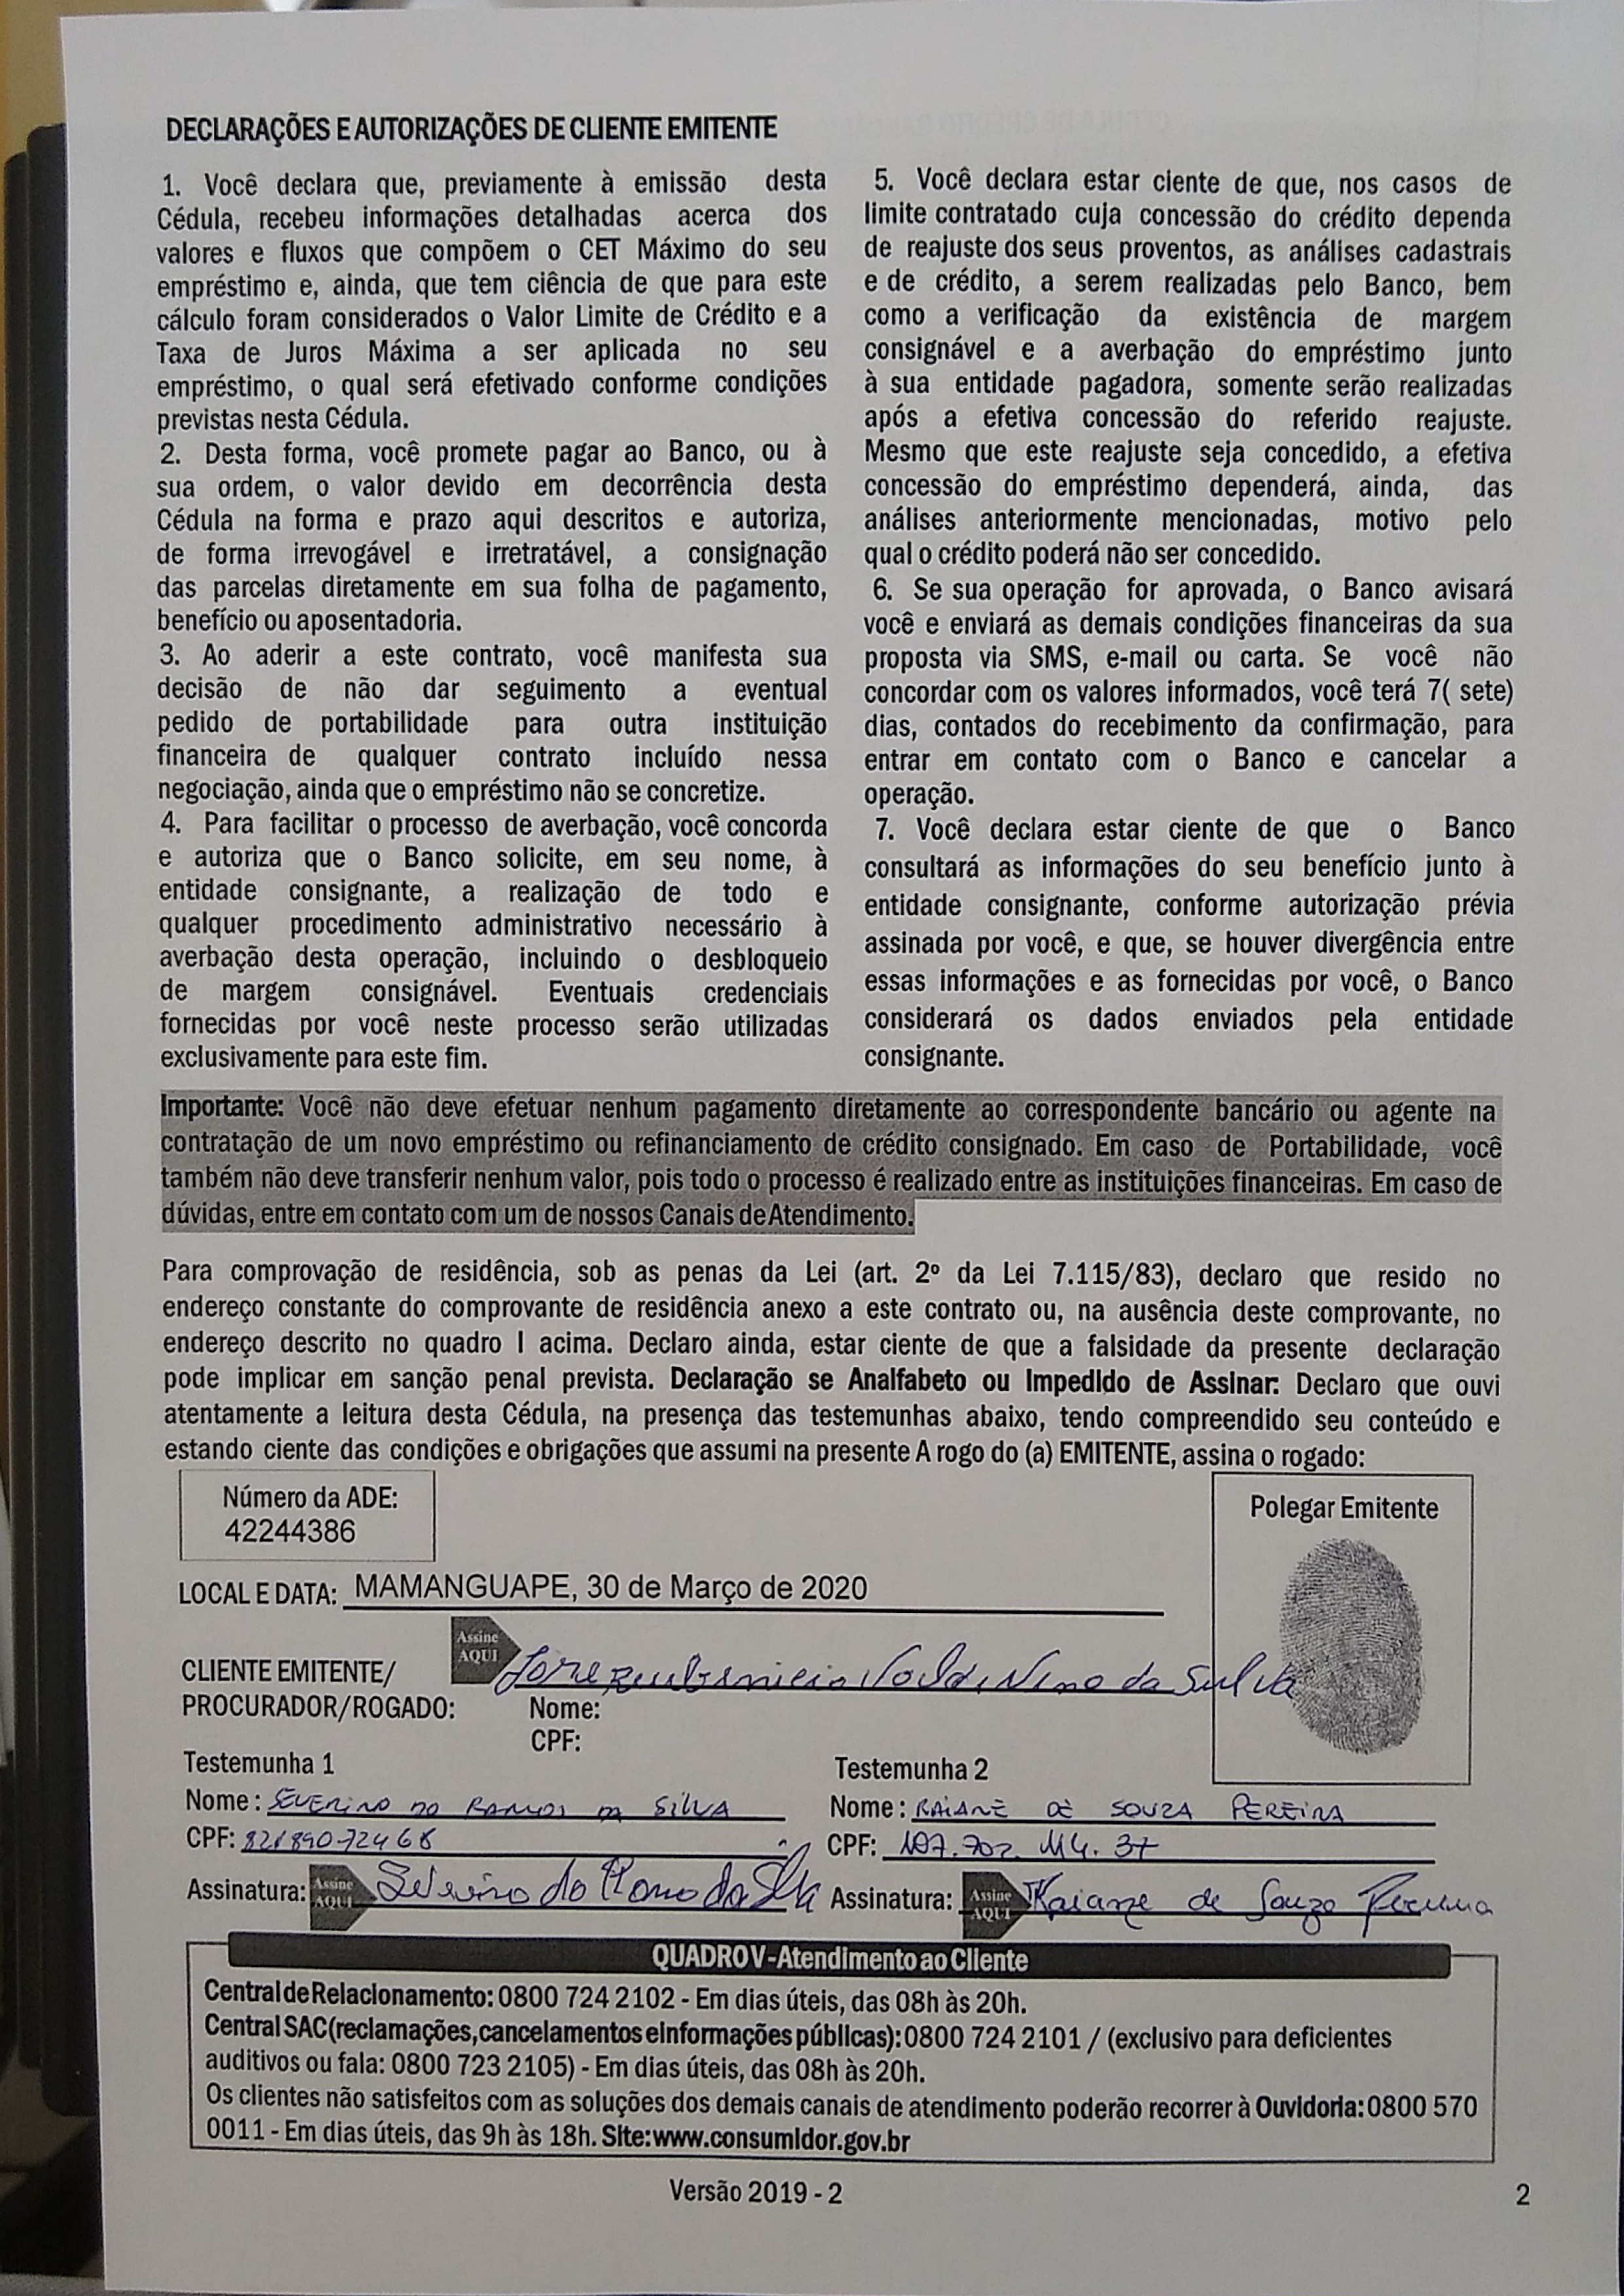 DECLARAÇÕES E AUTORIZAÇÕES DE CLIENTE EMITENTE
1. Você declara que, previamente à emissão desta
Cédula, recebeu informações detalhadas acerca dos
valores e fluxos que compõem o CET Máximo do seu
empréstimo e, ainda, que tem ciência de que para este
cálculo foram considerados o Valor Limite de Crédito e a
Taxa de Juros Máxima a ser aplicada no seu
empréstimo, o qual será efetivado conforme condições
previstas nesta Cédula.
2. Desta forma, você promete pagar ao Banco, ou à
sua ordem, o valor devido em decorrência desta
Cédula na forma e prazo aqui descritos e autoriza,
de forma irrevogável e irretratável, a consignação
das parcelas diretamente em sua folha de pagamento,
benefício ou aposentadoria.
3. Ao aderir a este contrato, você manifesta sua
decisão de não dar seguimento a eventual
pedido de portabilidade para outra instituição
financeira de qualquer contrato incluído nessa
negociação, ainda que o empréstimo não se concretize.
4. Para facilitar o processo de averbação, você concorda
e autoriza que o Banco solicite, em seu nome, à
entidade consignante, a realização de todo e
qualquer procedimento administrativo necessário à
averbação desta operação, incluindo o desbloqueio
de margem consignável. Eventuais credenciais
fornecidas por você neste processo serão utilizadas
exclusivamente para este fim.
5. Você declara estar ciente de que, nos casos de
limite contratado cuja concessão do crédito dependa
de reajuste dos seus proventos, as análises cadastrais
e de crédito, a serem realizadas pelo Banco, bem
como a verificação da existência de margem
consignável e a averbação do empréstimo junto
à sua entidade pagadora, somente serão realizadas
após a efetiva concessão do referido reajuste.
Mesmo que este reajuste seja concedido, a efetiva
concessão do empréstimo dependerá, ainda, das
análises anteriormente mencionadas, motivo pelo
qual o crédito poderá não ser concedido.
6. Se sua operação for aprovada, o Banco avisará
você e enviará as demais condições financeiras da sua
proposta via SMS, e-mail ou carta. Se você não
concordar com os valores informados, você terá 7( sete)
dias, contados do recebimento da confirmação, para
entrar em contato com o Banco e cancelar a
operação.
7. Você declara estar ciente de que o Banco
consultará as informações do seu benefício junto à
entidade consignante, conforme autorização prévia
assinada por você, e que, se houver divergência entre
essas informações e as fornecidas por você, o Banco
considerará os dados enviados pela entidade
consignante.
Importante: Você não deve efetuar nenhum pagamento diretamente ao correspondente bancário ou agente na
contratação de um novo empréstimo ou refinanciamento de crédito consignado. Em caso de Portabilidade, você
também não deve transferir nenhum valor, pois todo o processo é realizado entre as instituições financeiras. Em caso de
dúvidas, entre em contato com um de nossos Canais de Atendimento.
Para comprovação de residência, sob as penas da Lei (art. 2º da Lei 7.115/83), declaro que resido no
endereço constante do comprovante de residência anexo a este contrato ou, na ausência deste comprovante, no
endereço descrito no quadro I acima. Declaro ainda, estar ciente de que a falsidade da presente declaração
pode implicar em sanção penal prevista. Declaração se Analfabeto ou Impedido de Assinar: Declaro que ouvi
atentamente a leitura desta Cédula, na presença das testemunhas abaixo, tendo compreendido seu conteúdo e
estando ciente das condições e obrigações que assumi na presente A rogo do (a) EMITENTE, assina o rogado:
Número da ADE:
42244386
Polegar Emitente
LOCAL E DATA: MAMANGUAPE, 30 de Março de 2020
Assine
AQUI
CLIENTE EMITENTE/
PROCURADOR/ROGADO:
da Silva
Nome:
CPF:
Testemunha 1
Nome: SEVERINO DO RAMOS DA SILVA
CPF: 82189072468
Assinatura: Assine AQUI Severino do Ramo da Silva
Testemunha 2
Nome: RAIANE DE SOUZA PEREIRA
CPF: 107.702.114.37
Assinatura: Assine AQUI Raiane de Souza Pereira
QUADRO V-Atendimento ao Cliente
Central de Relacionamento: 0800 724 2102 - Em dias úteis, das 08h às 20h.
Central SAC (reclamações, cancelamentos e informações públicas): 0800 724 2101 / (exclusivo para deficientes
auditivos ou fala: 0800 723 2105) - Em dias úteis, das 08h às 20h.
Os clientes não satisfeitos com as soluções dos demais canais de atendimento poderão recorrer à Ouvidoria: 0800 570
0011 - Em dias úteis, das 9h às 18h. Site: www.consumidor.gov.br
Versão 2019 - 2
2